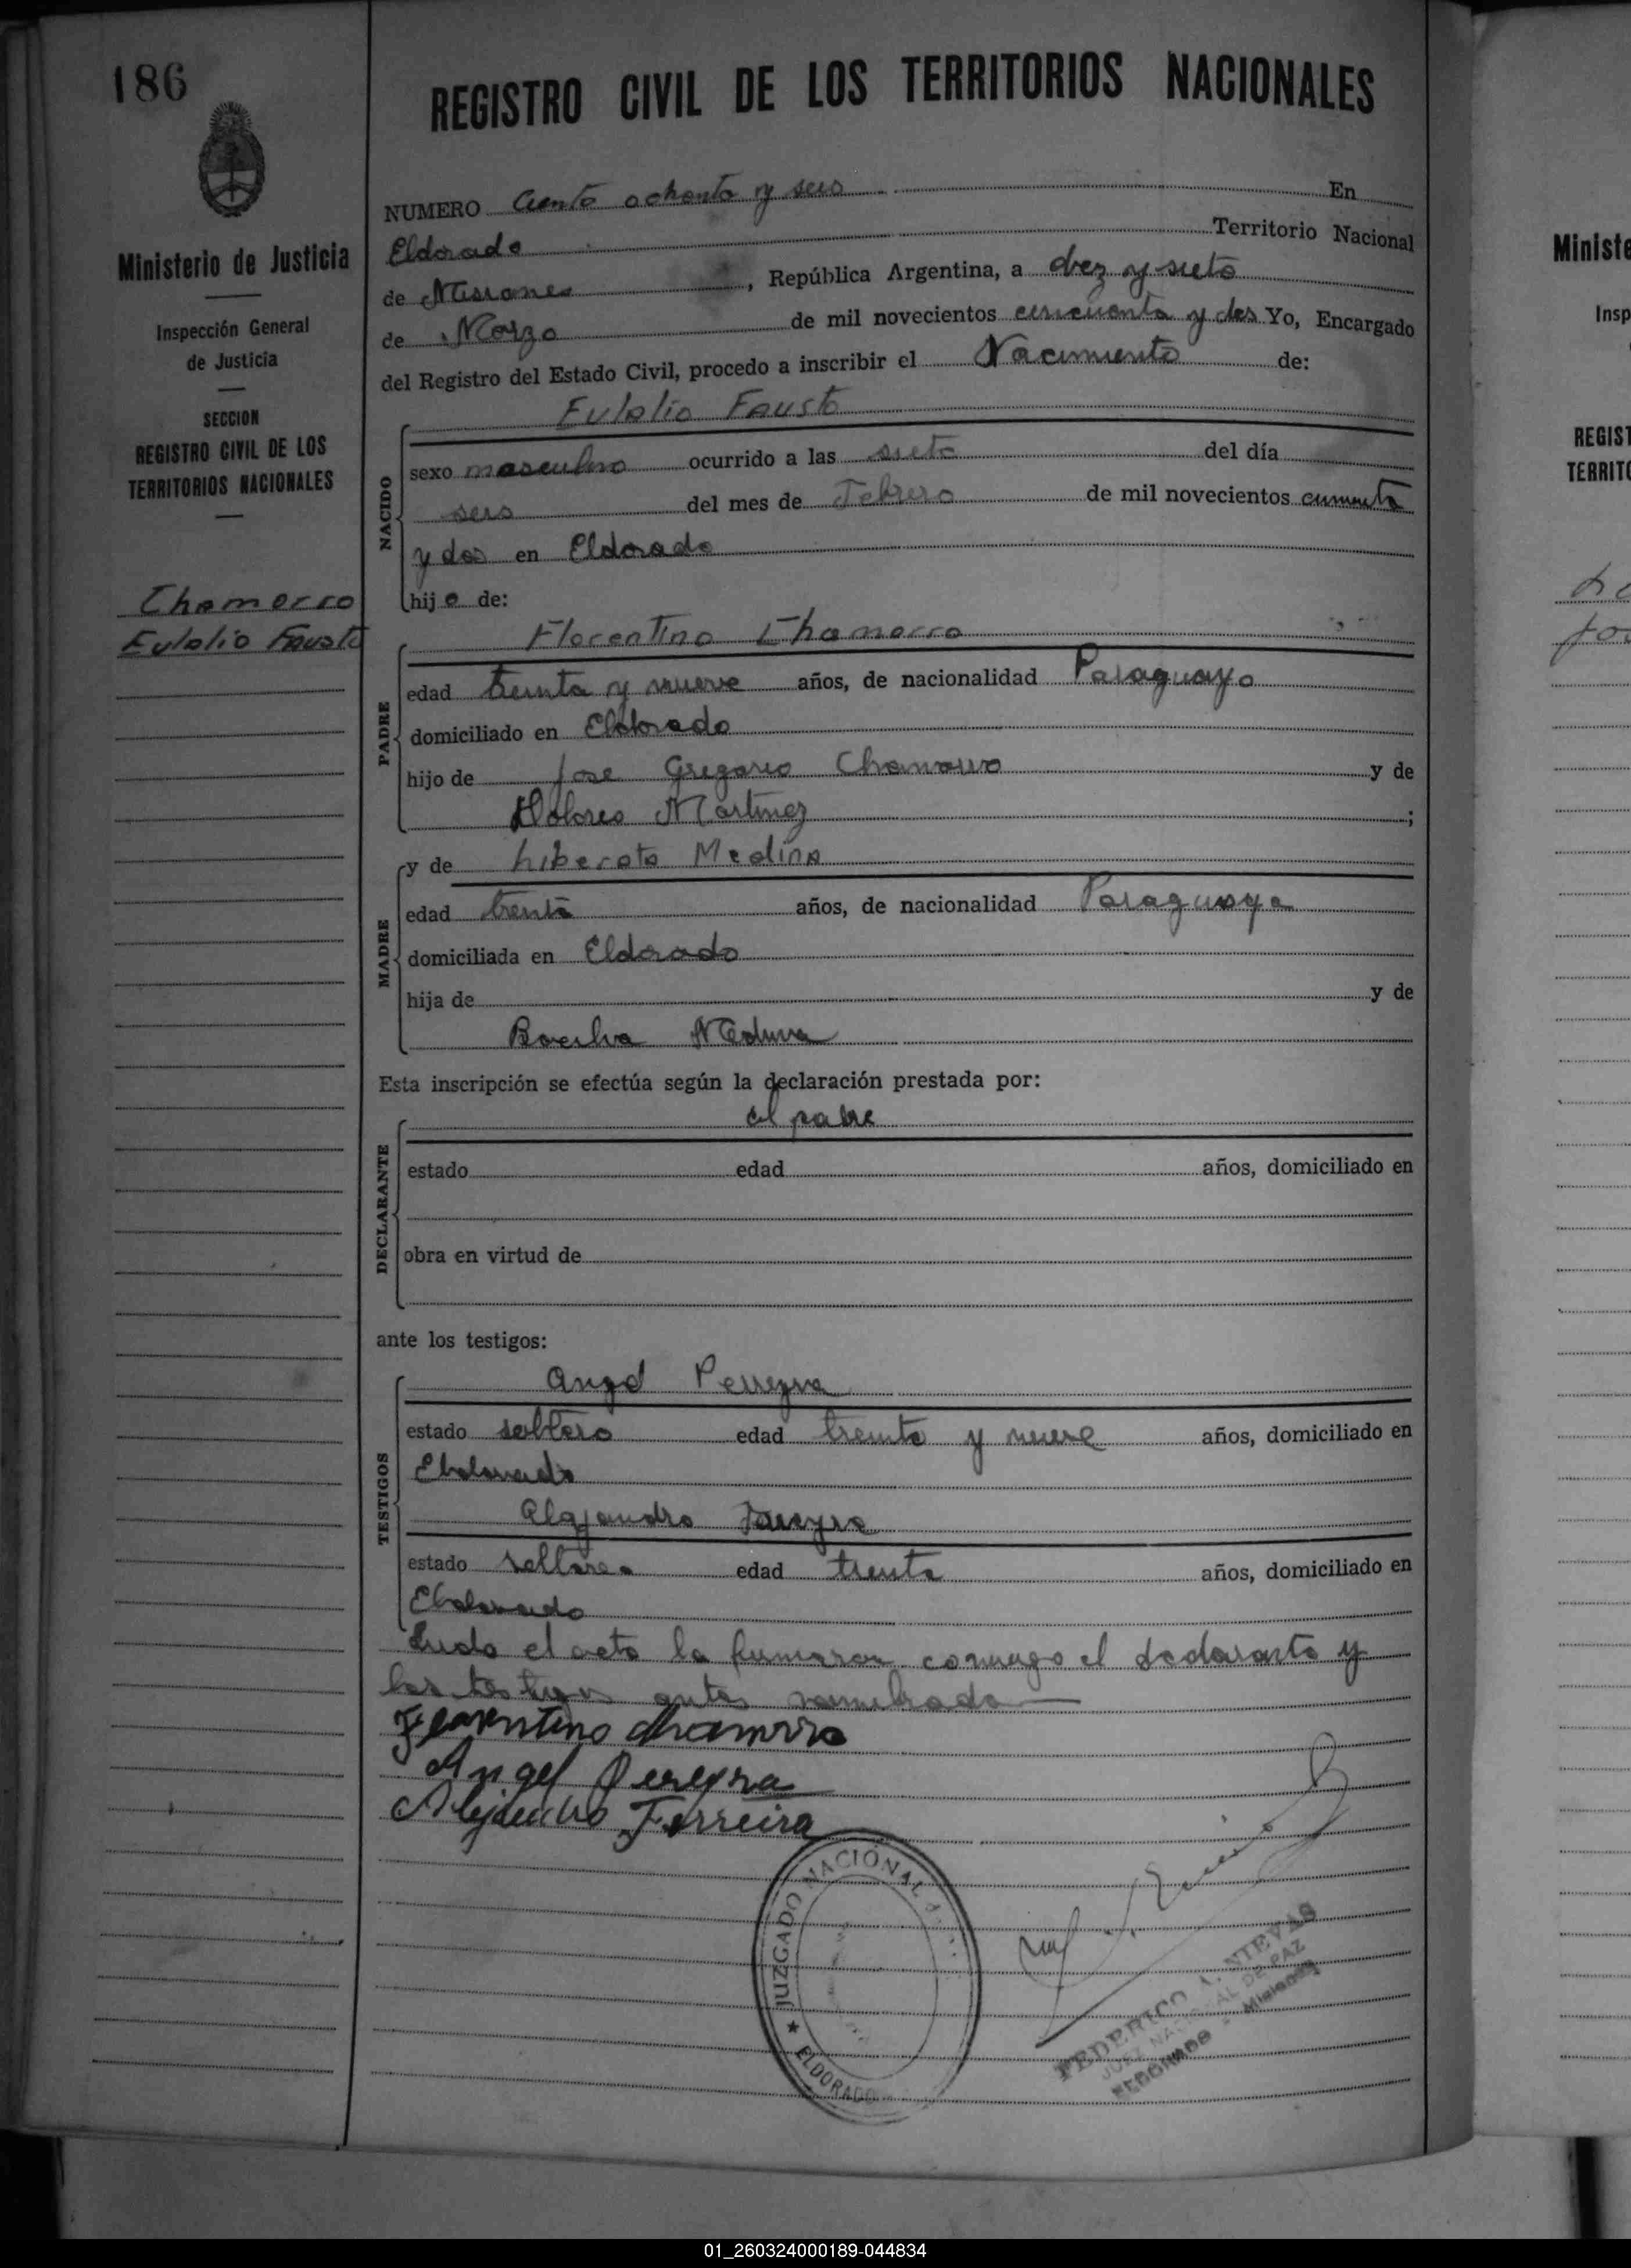 186
REGISTRO CIVIL DE LOS TERRITORIOS NACIONALES
Ministerio de Justicia
Inspección General
de Justicia
SECCION
REGISTRO CIVIL DE LOS
TERRITORIOS NACIONALES
Chamorro
Eulalio Fausto
NUMERO Ciento ochenta y seis En
Eldorado Territorio Nacional
de Misiones, República Argentina, a diez y siete
de Marzo de mil novecientos cincuenta y dos Yo, Encargado
del Registro del Estado Civil, procedo a inscribir el Nacimiento de:
NACIDO
Eulalio Fausto
sexo masculino ocurrido a las siete del día
seis del mes de Febrero de mil novecientos cincuenta
y dos en Eldorado
hijo de:
PADRE
Florentino Chamorro
edad treinta y nueve años, de nacionalidad Paraguayo
domiciliado en Eldorado
hijo de Jose Gregorio Chamorro y de
Dolores Martinez ;
MADRE
y de Liberata Medina
edad treinta años, de nacionalidad Paraguaya
domiciliada en Eldorado
hija de y de
Medina
Esta inscripción se efectúa según la declaración prestada por:
DECLARANTE
el padre
estado edad años, domiciliado en
obra en virtud de
ante los testigos:
TESTIGOS
Angel Perreyra
estado soltero edad treinta y nueve años, domiciliado en
Eldorado
Alejandro
estado soltero edad treinta años, domiciliado en
Eldorado
Leida el acta la firmaron conmigo el declarante y
los testigos antes nombrado
Florentino Chamorro
Angel Pereyra
Alejandro Ferreira
JUZGADO NACIONAL
ELDORADO
FEDERICO A. NIEVAS
JUEZ NACIONAL DE PAZ
ELDORADO - Misiones
Ministe
Insp
REGIST
TERRITO
01_260324000189-044834